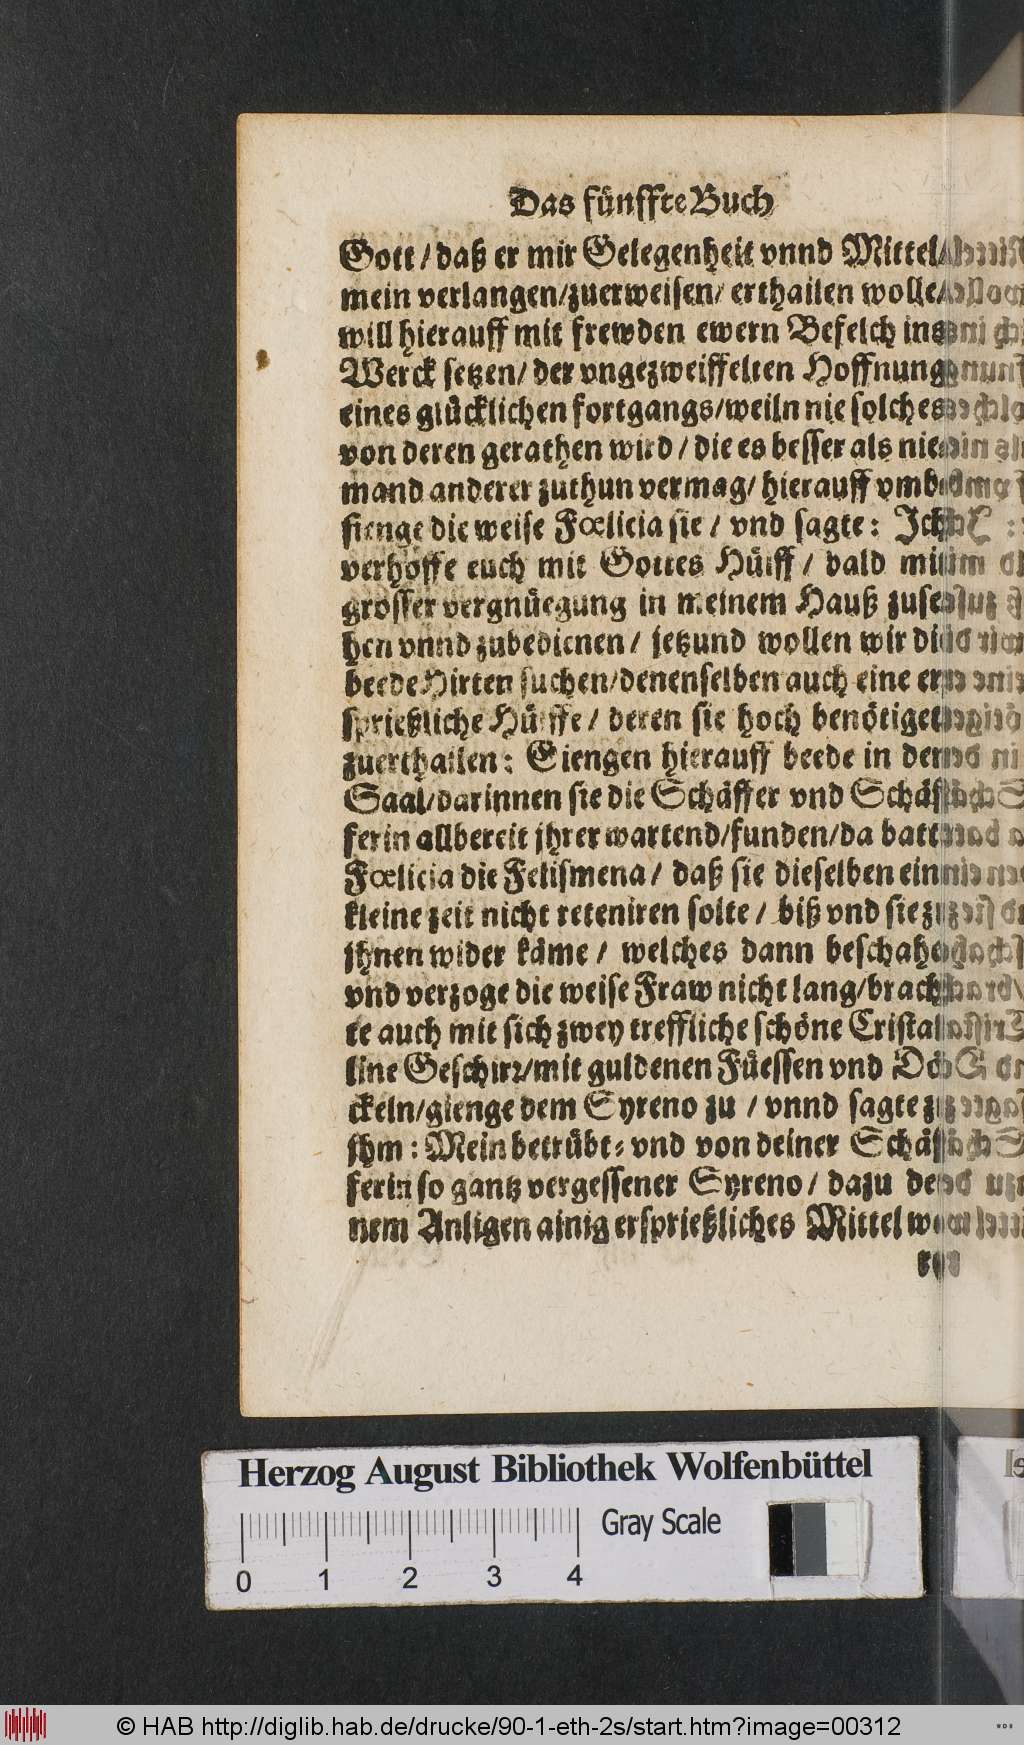 Das fünffte Buch
Gott / daß er mir Gelegenheit vnnd Mittel /
mein verlangen / zuerweisen / erthailen wolle /
will hierauff mit frewden ewern Befelch ins
Werck setzen / der vngezweiffelten Hoffnung
eines glücklichen fortgangs / weiln nie solches
von deren gerathen wird / die es besser als nie-
mand anderer zuthun vermag / hierauff vmb-
fienge die weise Fœlicia sie / vnd sagte: Ich
verhoffe euch mit Gottes Hülff / bald mit
grosser vergnüegung in meinem Hauß zuse-
hen vnnd zubedienen / jetzund wollen wir die
beede Hirten suchen / denenselben auch eine er-
sprießliche Hülffe / deren sie hoch benötiget
zuerthailen: Giengen hierauff beede in den
Saal / darinnen sie die Schäffer vnd Schäf-
ferin allbereit jhrer wartend / funden / da batt
Fœlicia die Felismena / daß sie dieselben ein
kleine zeit nicht reteniren solte / biß vnd sie zu
jhnen wider käme / welches dann beschahe
vnd verzoge die weise Fraw nicht lang / brach-
te auch mit sich zwey treffliche schöne Cristal-
line Geschirr / mit guldenen Füessen vnd Dö-
ckeln / gienge dem Syreno zu / vnnd sagte zu
jhm: Mein betrübt- vnd von deiner Schäf-
ferin so gantz vergessener Syreno / dazu dei-
nem Anligen ainig ersprießliches Mittel we-
Herzog August Bibliothek Wolfenbüttel
Gray Scale
0 1 2 3 4
© HAB http://diglib.hab.de/drucke/90-1-eth-2s/start.htm?image=00312